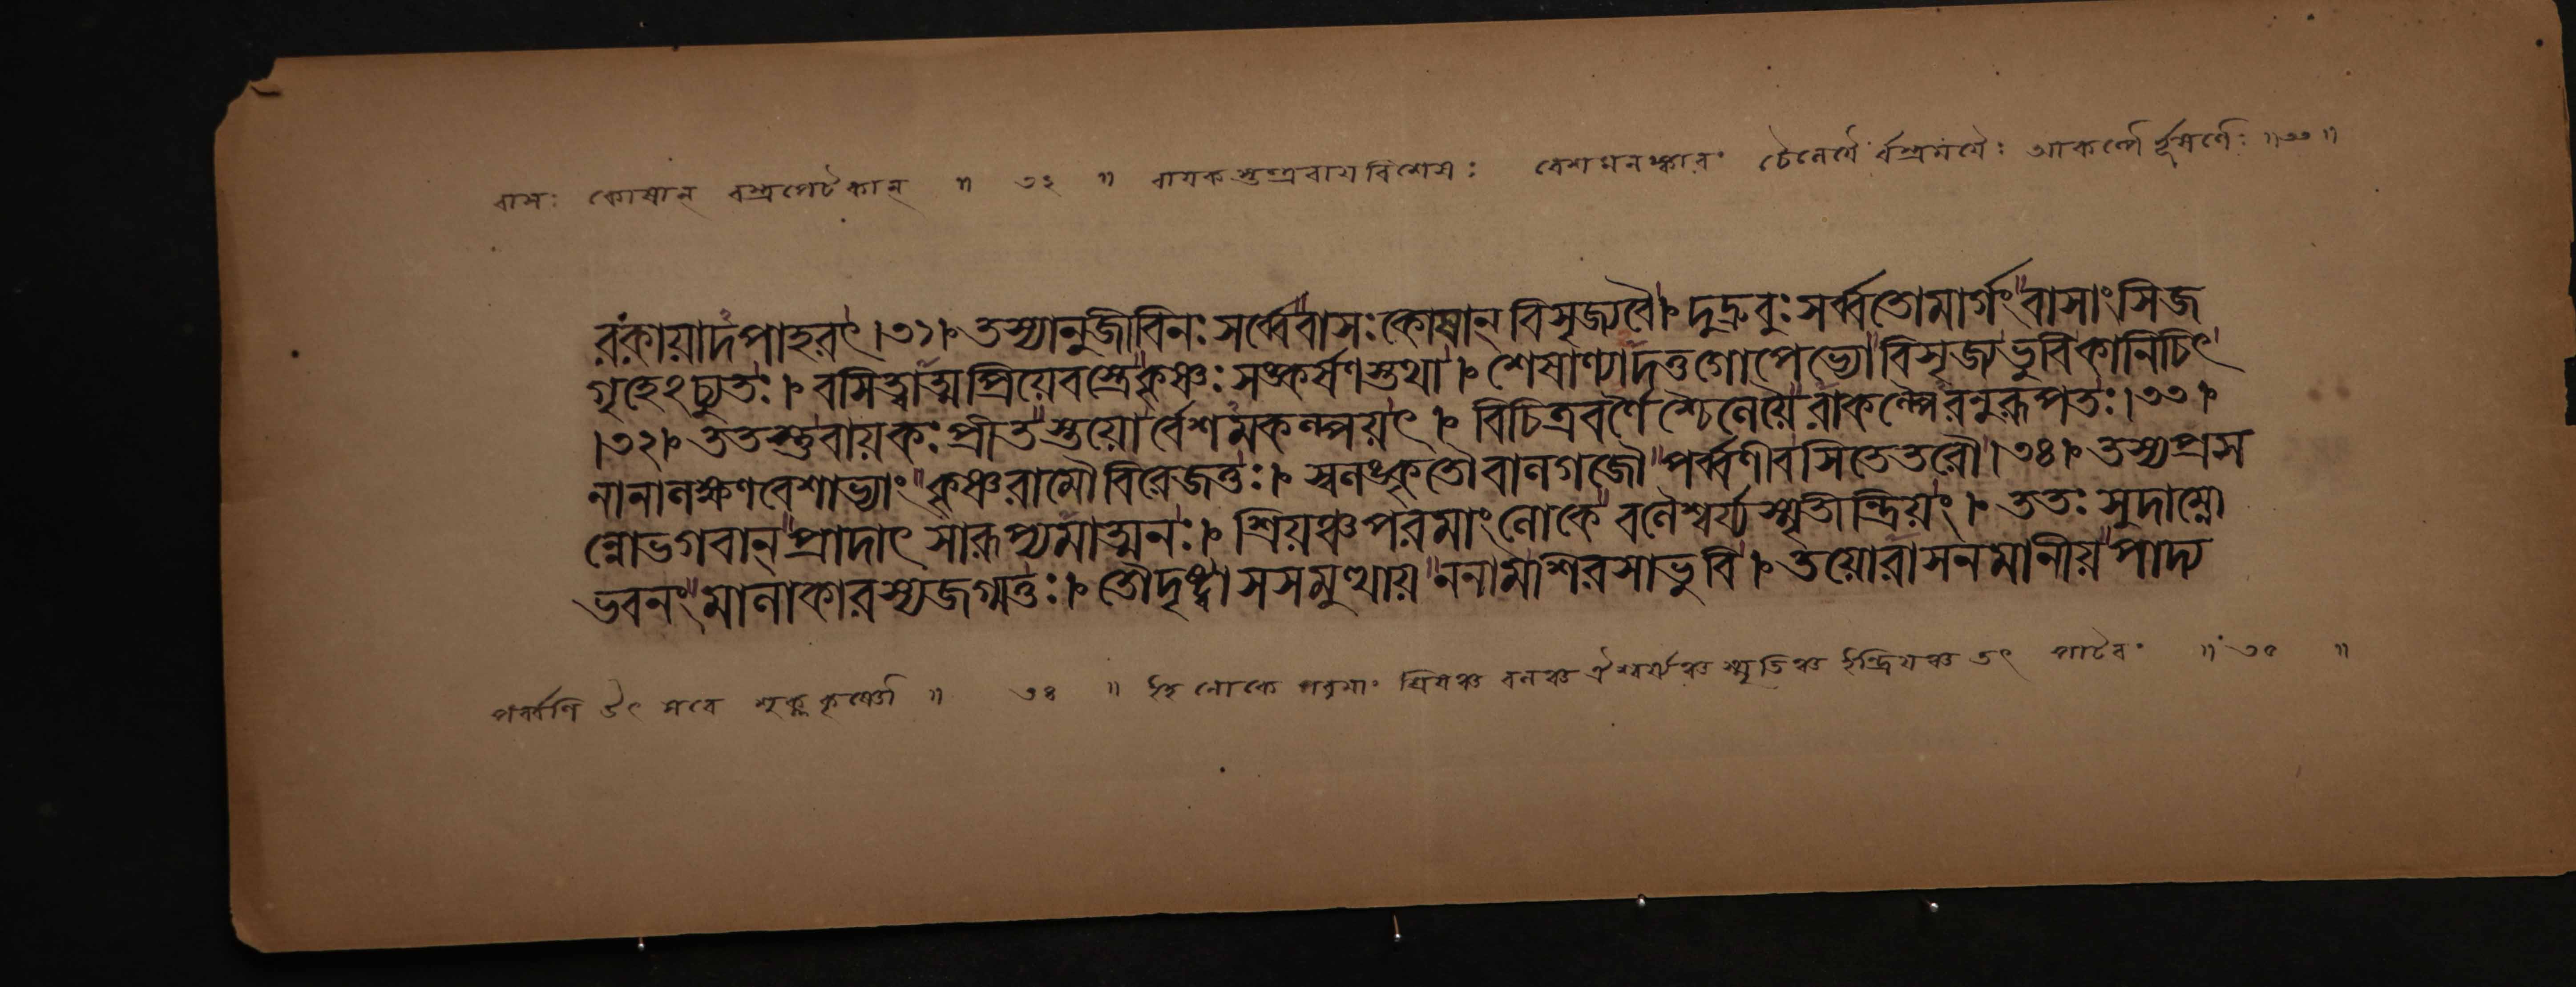 বাসঃ কোষান্ বস্ত্রপেটকান্ ॥ ৩২ ॥ বায়কস্তন্ত্রবায়বিশেষঃ বেশমলঙ্কারং চৈলেয়ৈর্বস্ত্রময়ৈঃ আকল্পৈর্ভূষণৈঃ ॥৩৩॥
রংকায়াদপাহরৎ।৩১। তস্যানুজীবিনঃসর্ব্বেবাসঃকোষান্ বিসৃজ্যবৈ। দুদ্রুবুঃসর্ব্বতোমার্গংবাসাংসিজ
গৃহেঽচ্যুতঃ। বসিত্বাত্মপ্রিয়েবস্ত্রেকৃষ্ণঃসঙ্কর্ষণস্তথা। শেষাণ্যাদত্তগোপেভ্যোবিসৃজ্যভুবিকানিচিৎ
।৩২। ততস্তুবায়কঃপ্রীতস্তয়োর্বেশমকল্পয়ৎ। বিচিত্রবর্ণৈশ্চৈলেয়ৈরাকল্পৈরনুরূপতঃ।৩৩।
নানালক্ষণবেশাভ্যাং কৃষ্ণরামৌবিরেজতুঃ। স্বলঙ্কৃতৌবালগজৌপর্ব্বণীবসিতেতরৌ।৩৪। তস্যপ্রস
ন্নোভগবান্প্রাদাৎ সারূপ্যমাত্মনঃ। শ্রিয়ঞ্চপরমাংলোকে বলৈশ্বর্য্যস্মৃতীন্দ্রিয়ং। ততঃ সুদাম্নো
ভবনংমালাকারস্যজগ্মতুঃ। তৌদৃষ্ট্বাসসমুত্থায় ননামশিরসাভুবি। তয়োরাসনমানীয়পাদ্য
পর্ব্বণি উৎসবে শুক্লকৃষ্ণৌ ॥ ৩৪ ॥ ইহ লোকে পরমাং শ্রিয়ঞ্চ বলঞ্চ ঐশ্বর্য্যঞ্চ স্মৃতিঞ্চ ইন্দ্রিয়ঞ্চ তৎ পাটবং ॥ ৩৫ ॥